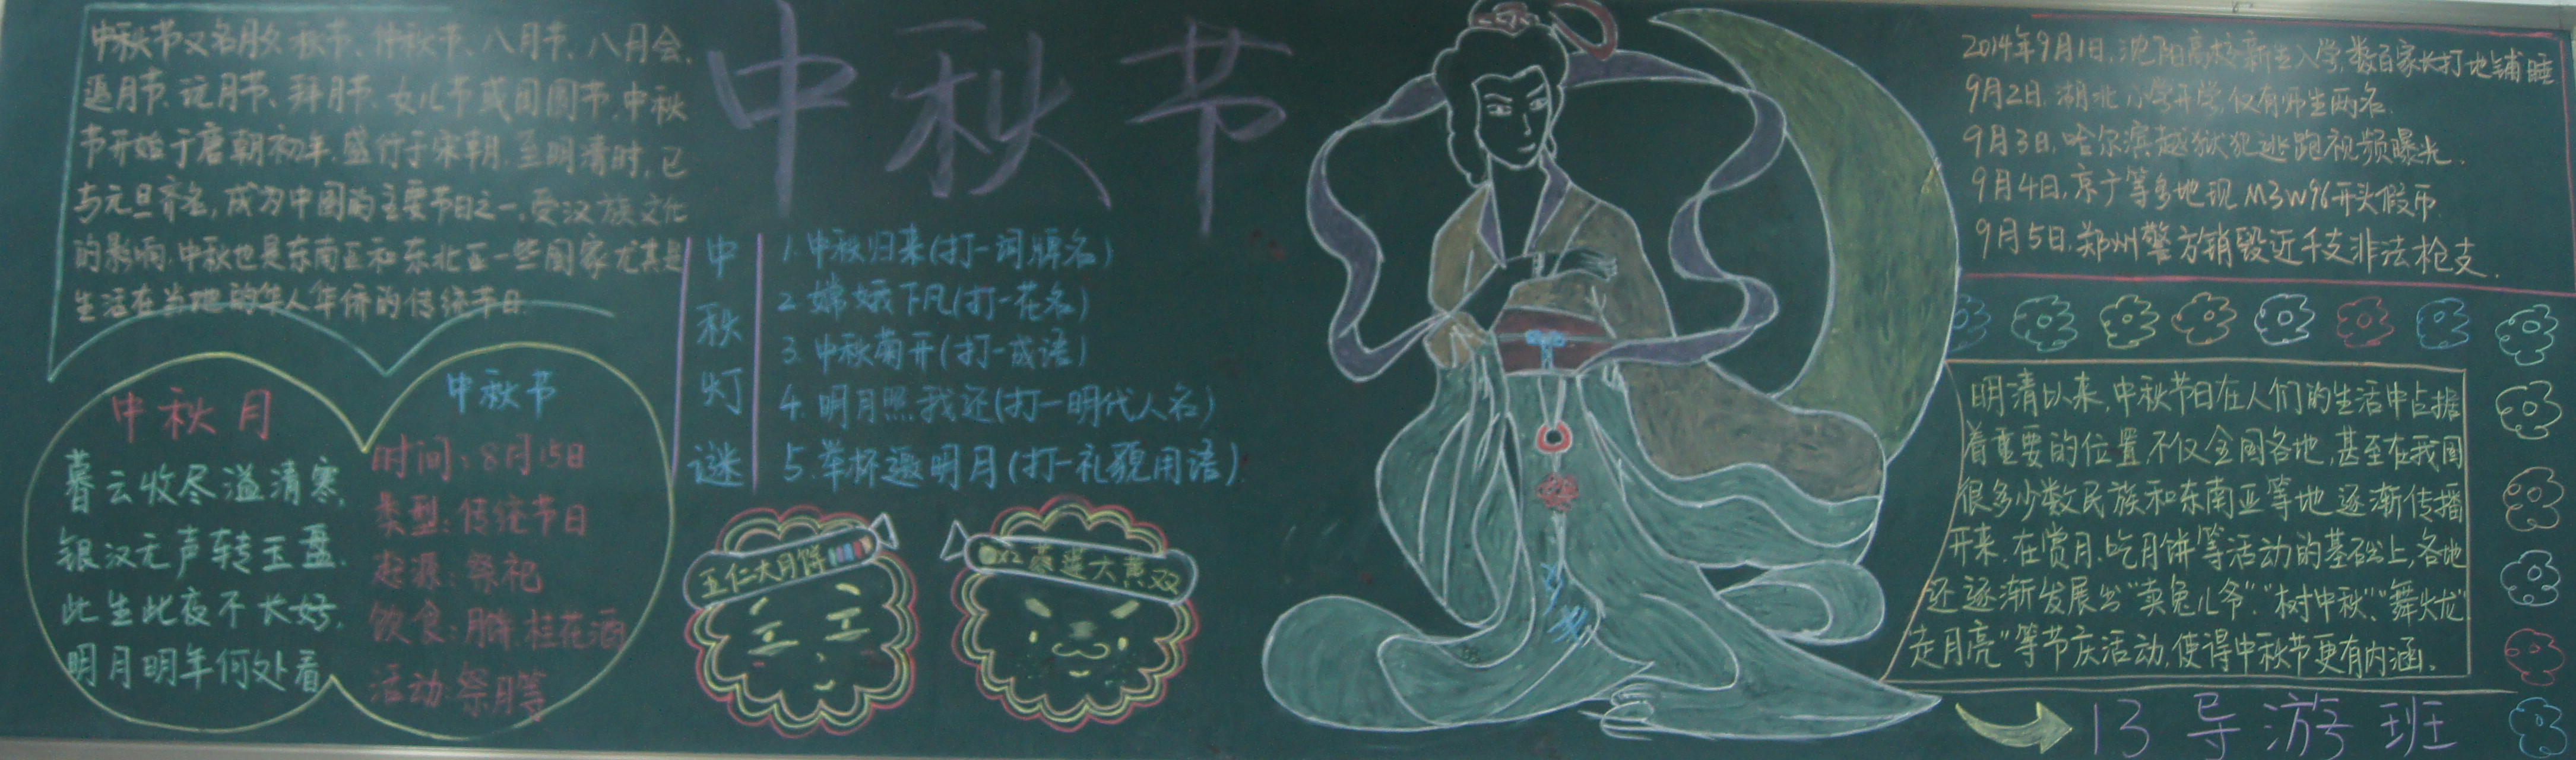 中秋节
中秋节又名月夕、秋节、仲秋节、八月节、八月会、
追月节、玩月节、拜月节、女儿节或团圆节,中秋
节开始于唐朝初年,盛行于宋朝,至明清时,已
与元旦齐名,成为中国的主要节日之一。受汉族文化
的影响,中秋也是东南亚和东北亚一些国家尤其是
生活在当地的华人华侨的传统节日.
中秋月
暮云收尽溢清寒,
银汉无声转玉盘.
此生此夜不长好,
明月明年何处看
中秋节
时间:8月15日
类型:传统节日
起源:祭祀
饮食:月饼.桂花酒
活动:祭月等
中秋灯谜
1.中秋归来(打一词牌名)
2.嫦娥下凡(打一花名)
3.中秋菊开(打一成语)
4.明月照我还(打一明代人名)
5.举杯邀明月(打一礼貌用语).
五仁大月饼
莲大黄双
2014年9月1日,沈阳高校新生入学,数百家长打地铺睡
9月2日,湖北小学开学,仅有师生两名.
9月3日,哈尔滨越狱犯逃跑视频曝光.
9月4日,京广等多地现M3W96开头假币
9月5日,郑州警方销毁近千支非法枪支.
明清以来,中秋节日在人们的生活中占据
着重要的位置,不仅全国各地,甚至在我国
很多少数民族和东南亚等地逐渐传播
开来.在赏月.吃月饼等活动的基础上,各地
还逐渐发展出“卖兔儿爷”.“树中秋”.“舞火龙”
走月亮”等节庆活动,使得中秋节更有内涵.
13导游班